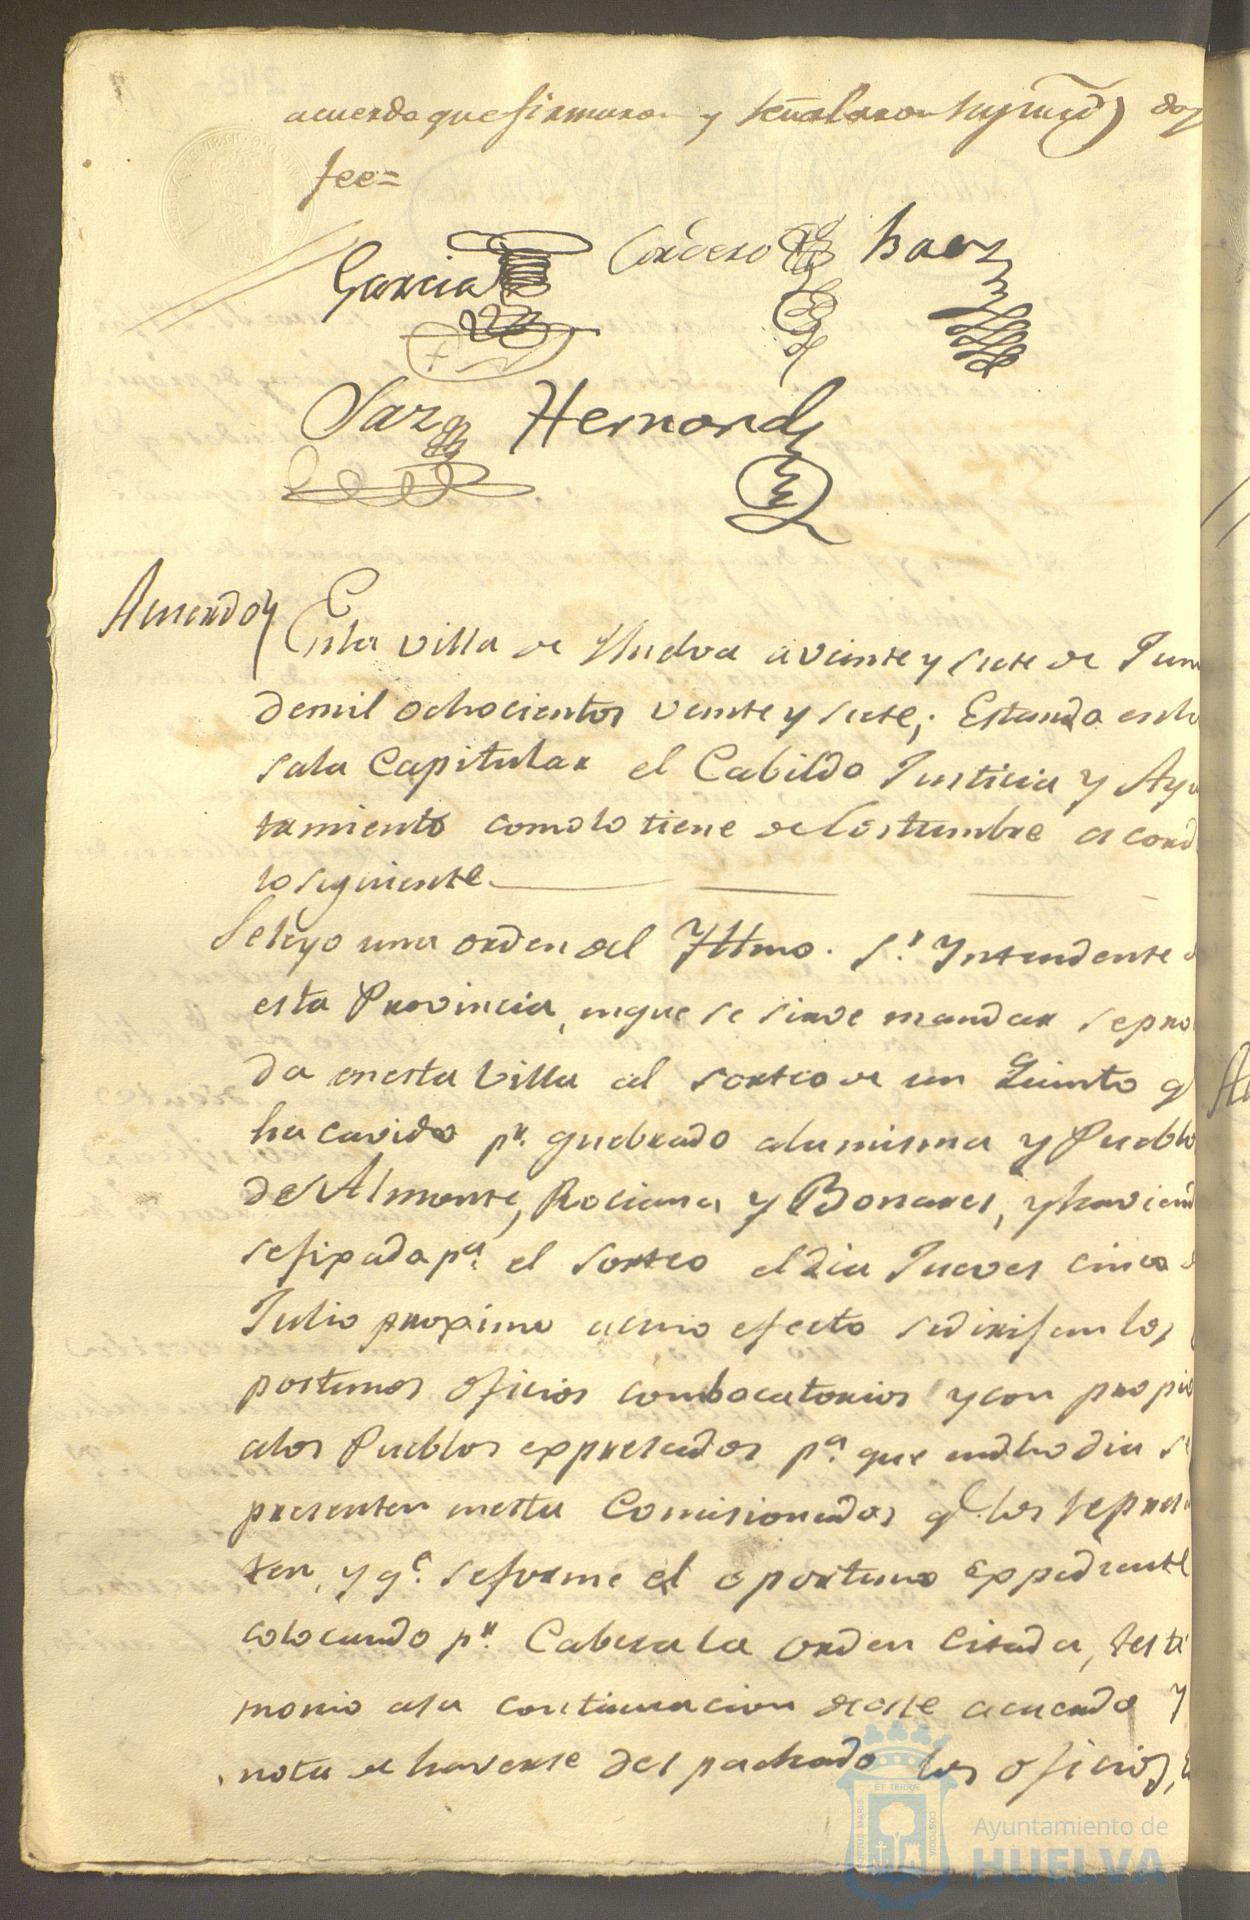 acuerdo que firmaron y señalaron sus mrds doy
fee=
Garcia Cordero Baez
Saz Hernand
Acuerdo
En la villa de Huelva a veinte y siete de Jun
de mil ochocientos veinte y siete; Estando en la
sala Capitular el Cabildo Justicia y Ayu
tamiento como lo tiene de Costumbre acord
lo siguiente.
Se leyo una orden del Yltmo. Sr. Yntendente d
esta Provincia, en que se sirve mandar se pro
da en esta Villa al sorteo de un Quinto q
ha cavido pr. quebrado a la misma y Pueblo
de Almonte, Rociana y Bonares, y haviend
se fixado pa. el sorteo el dia Jueves cinco d
Julio proximo a cuio efecto se dirijan los
portunos oficios combocatorios y con propio
a los Pueblos expresados pa. que en dho dia s
presenten en esta Comisionados qe. los represe
ten, y qe. se forme el oportuno expediente
colocando pr. Cabesa la orden citada, testi
monio a su continuacion de este acuerdo y
nota de haverse despachado los oficios,
ET TERRÆ
PORTUS MARIS
CUSTODIA
Ayuntamiento de
HUELVA